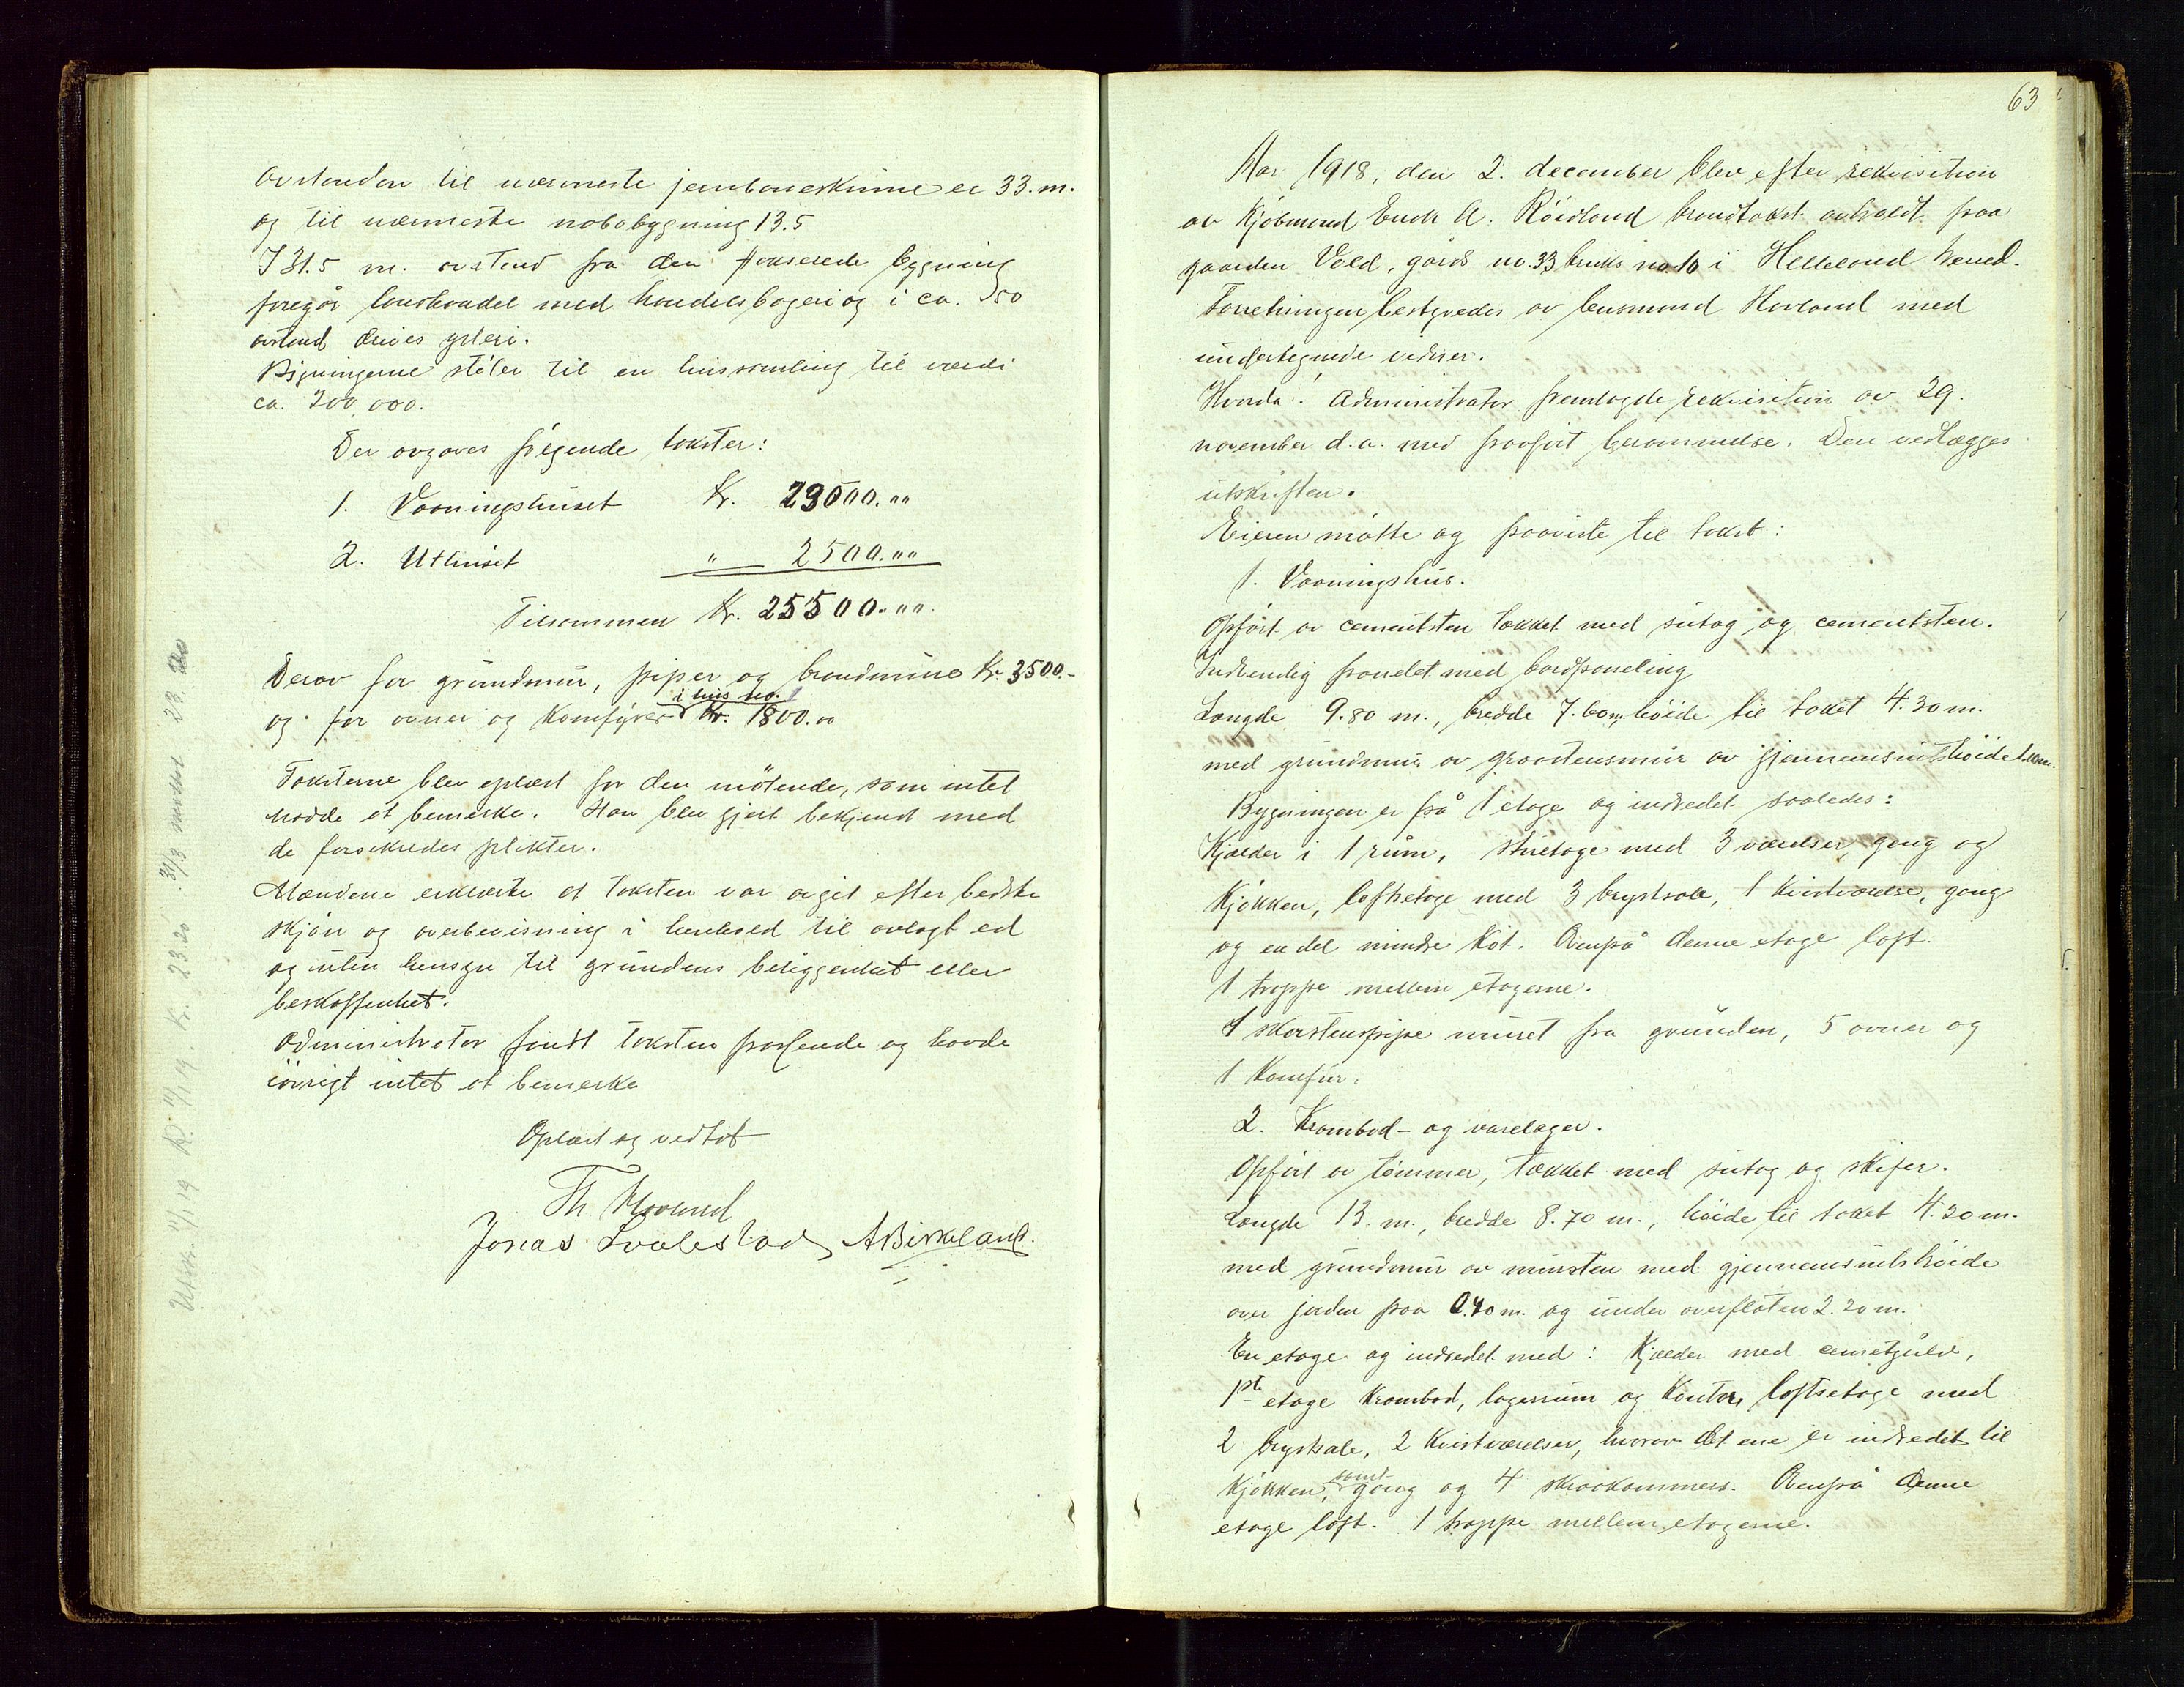 Avstanden til nærmeste jernbaneskinne er 33. m.
og til nærmeste nabobygning 13.5
I 31.5 m. avstand fra den takserede bygning
foregår landhandel med handelsbageri og i ca. 50
avstand drives ysteri.
Bygningerne støter til en hussamling til værdi
ca. 200,000.
Der avgaves følgende takster:
1. Vaaningshuset Kr. 23000.00
2. Uthuset " 2500.00
Tilsammen Kr. 25500.00.
Derav for grundmur, piper og brandmure Kr. 3500.-
i hus no. 1
og for ovner og Komfyrer Kr. 1800.00
Taksterne blev oplæst for den møtende, som intet
hadde at bemerke. Han blev gjort bekjendt med
de forsikredes plikter.
Mændene erklærte at taksten var avgit efter bedste
skjøn og overbevisning i henhold til avlagt ed
og uten hensyn til grundens beliggenhet eller
beskaffenhet.
Administrator fandt taksten passende og havde
iøvrigt intet at bemerke
Oplæst og vedtat
Th Hovland
Jonas Svalestad, A Birkeland.
Utskr. 11/1 19 R. 11/1 19. Kr. 23.20 31/3 23.20
63
Aar 1918, den 2. december blev efter rekvisition
av Kjøbmand Endr A. Røidland brandtakst avholdt paa
gaarden Vold, gårds no. 33 bruks no. 10 i Helleland herred.
Forretningen bestyredes av lensmand Hovland med
undertegnede vidner.
Hvorda! Administrator fremlagde rekvisition av 29.
november d.a. med paaført berammelse. Den vedlægges
utskriften.
Eieren møtte og paaviste til takst:
1. Vaaningshus.
Opført av cementsten tækket med sutag og cementsten.
Indvendig panelet med bordpaneling
Længde 9.80 m., bredde 7.60 m, høide til taket 4.30 m.
med grundmur av graastensmur av gjennemsnitshøide
Bygningen er på 1 etage og indredet saaledes:
Kjælder i 1 rum, stuetage med 3 værelser, gang og
Kjøkken, loftsetage med 3 brystsale, 1 Kvistværelse, gang
og en del mindre Kot. Ovenpå denne etage loft.
1 trappe mellem etagerne.
1 skorstenspipe muret fra grunden, 5 ovner og
1 Komfur.
2. Krambod- og varelager.
Opført av tømmer, tækket med sutag og skifer.
Længde 13. m., bredde 8.70 m., høide til taket 4.20 m.
med grundmur av mursten med gjennemsnitshøide
over jorden paa 0.40 m. og under overflaten 2.20 m.
En etage og indredet med: Kjælder med cementgulv,
1ste etage Krambod, lagerrum og Kontor, loftsetage med
2 brystsale, 2 Kvistværelser, hvorav det ene er indredet til
samt
Kjøkken, gang og 4 skraakammers. Ovenpå denne
etage loft. 1 trappe mellem etagerne.